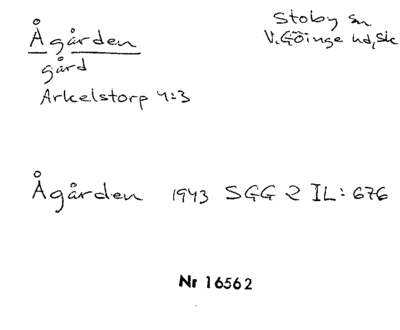 Ågården
gård
Arkelstorp 4:3
Stoby sn
V. Göinge hd, Sk
Ågården 1943 SGG 2 IL: 676
Nr 16562